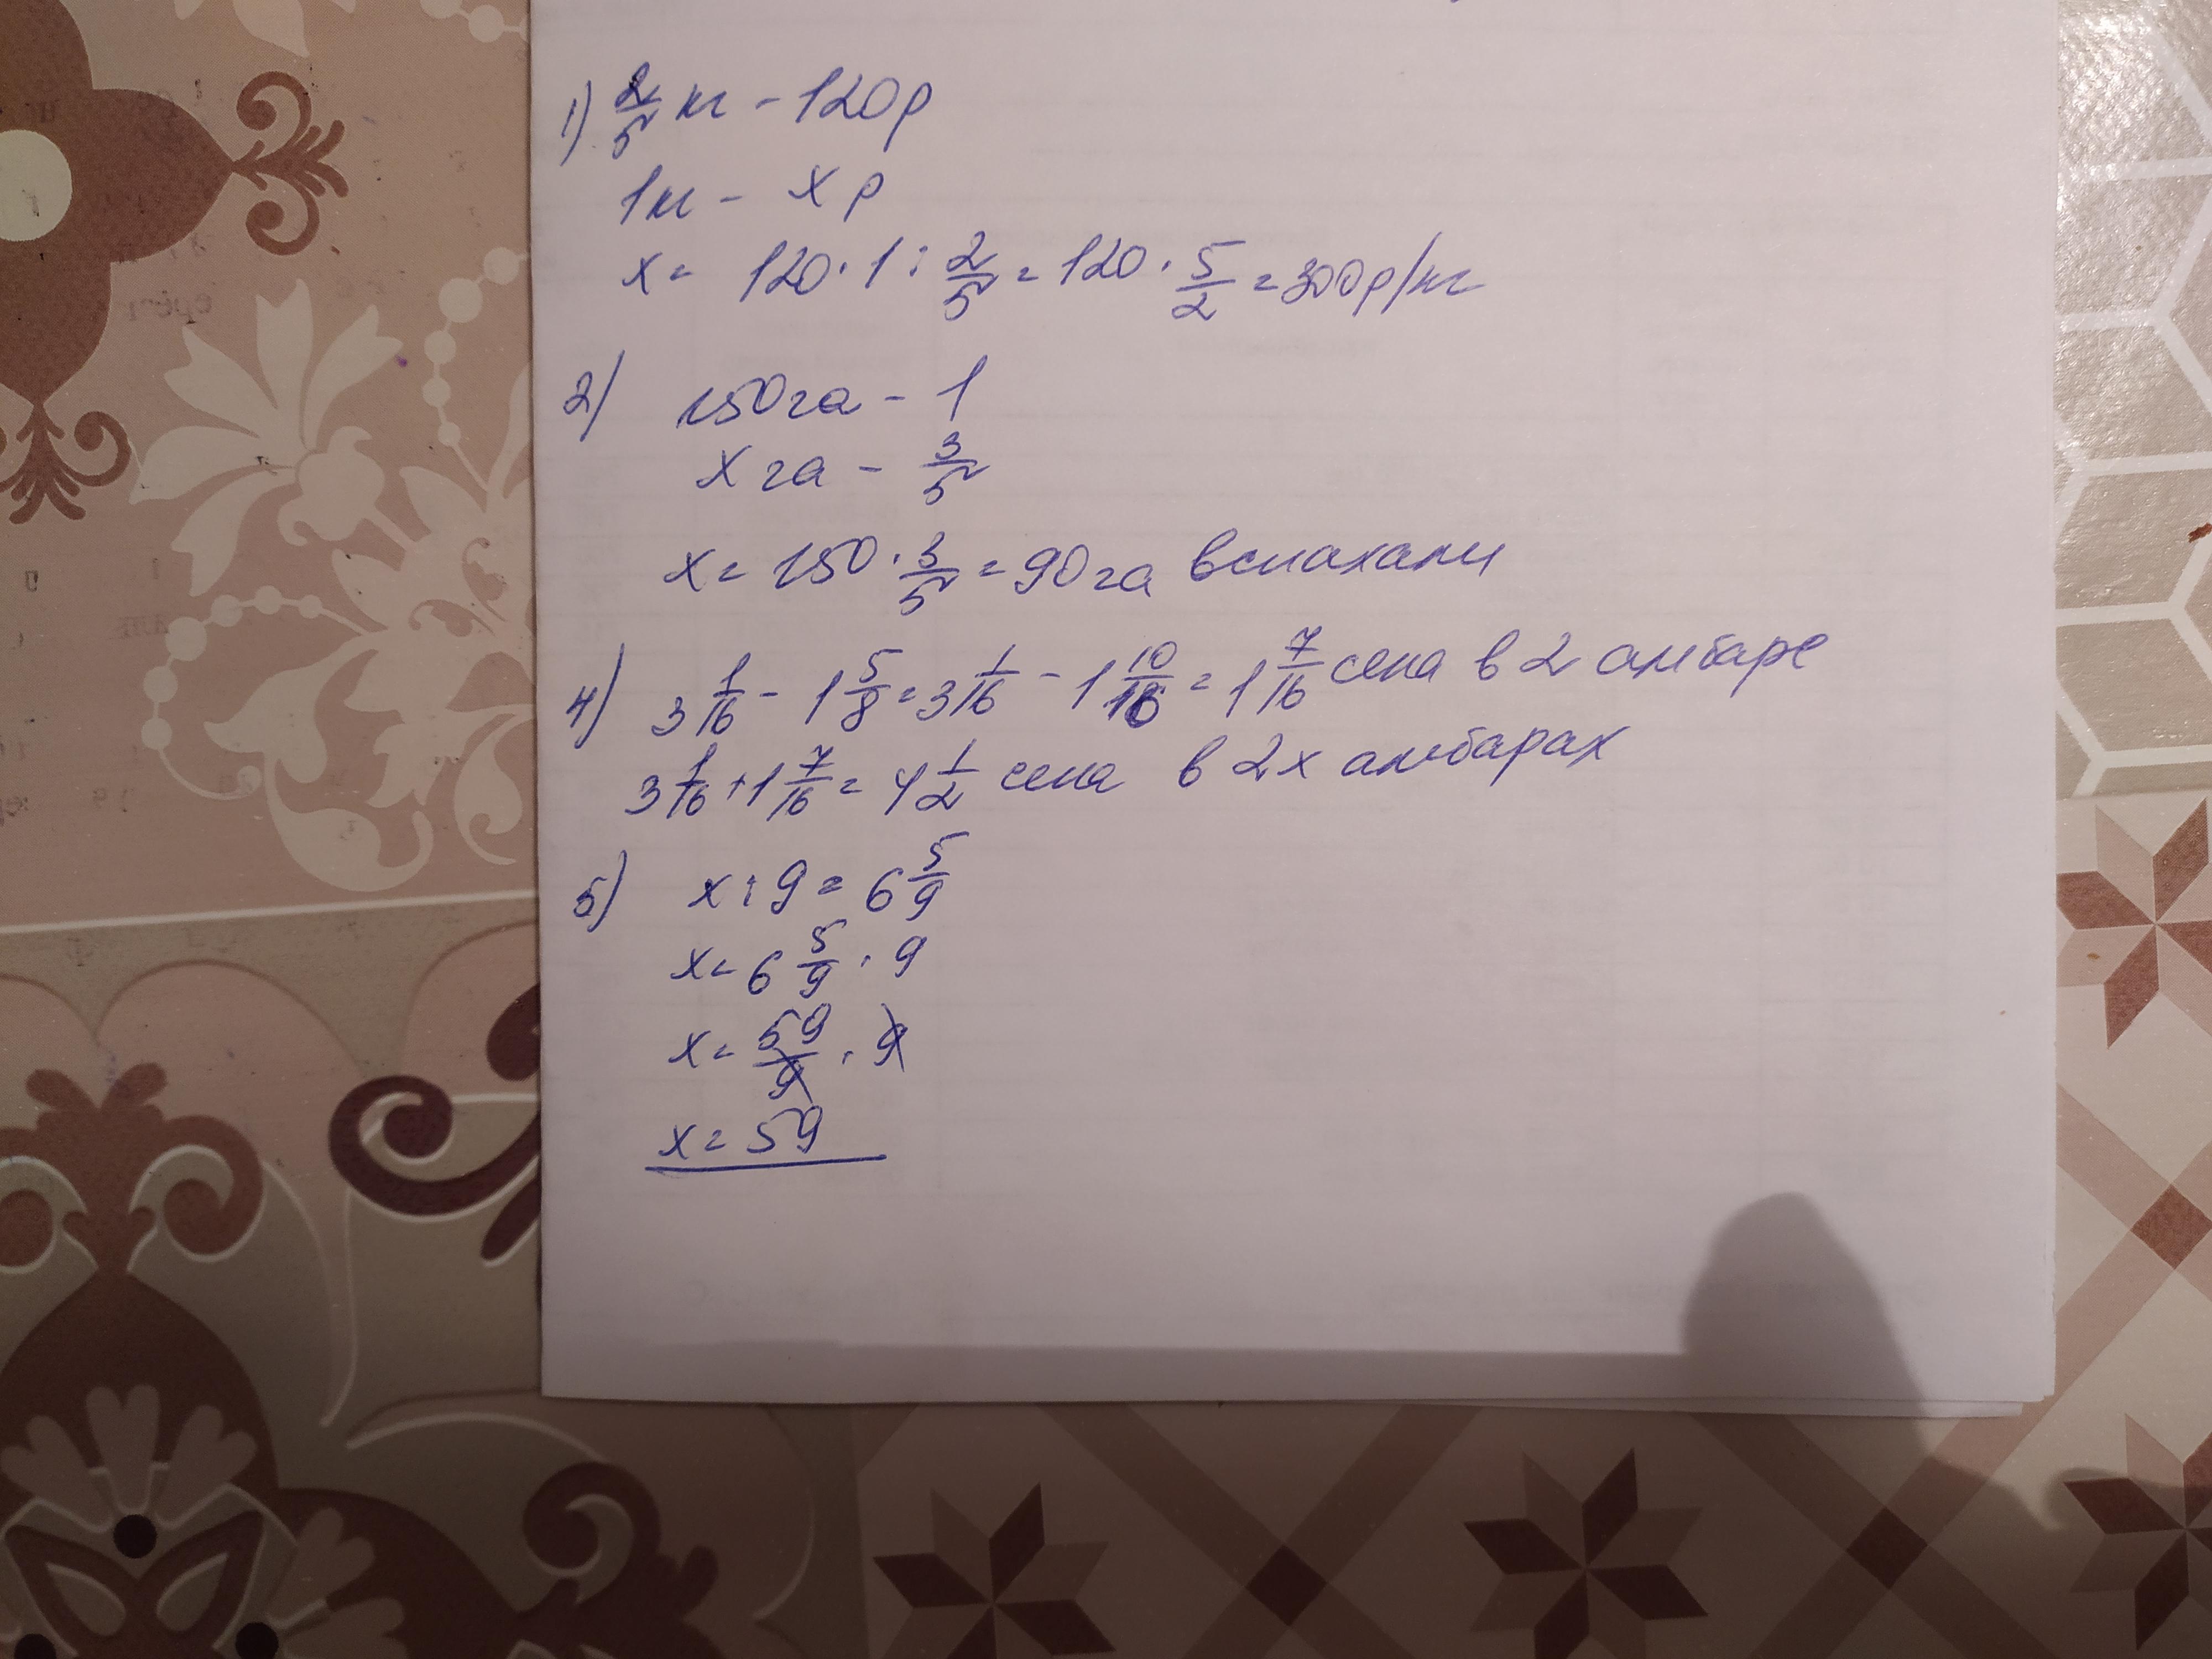 1) 2/5 кг - 120р
1кг - х р
х = 120 · 1 : 2/5 = 120 · 5/2 = 300р/кг
2) 150га - 1
х га - 3/5
х = 150 · 3/5 = 90га вспахали
4) 3 1/16 - 1 5/8 = 3 1/16 - 1 10/16 = 1 7/16 сена в 2 амбаре
3 1/16 + 1 7/16 = 4 1/2 сена в 2х амбарах
5) х : 9 = 6 5/9
х = 6 5/9 · 9
х = 59/9 · 9
х = 59